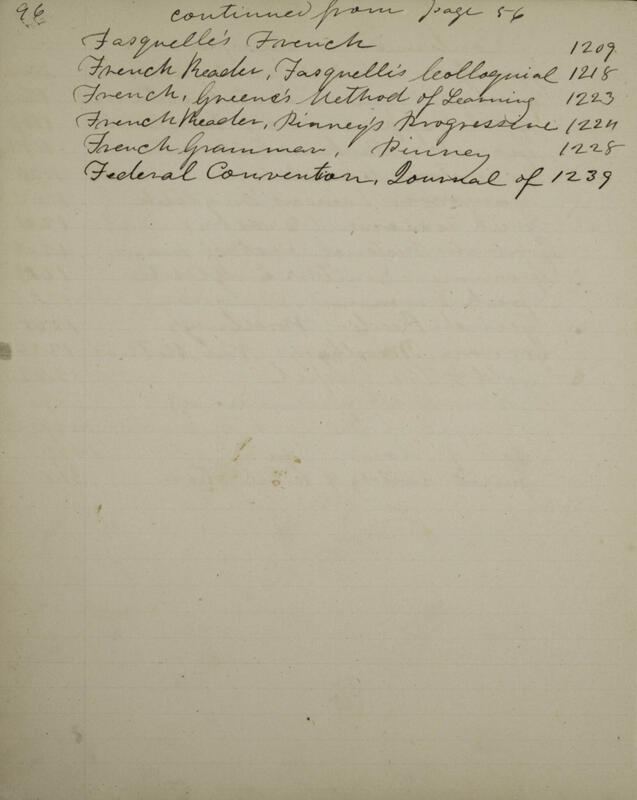 96 continued from page 56
Fasquelle's French 1209
French Reader, Fasquelle's Colloquial 1218
French, Greene's Method of Learning 1223
French Reader, Pinney's Progressive 1224
French Grammar, Pinney 1228
Federal Convention, Journal of 1239